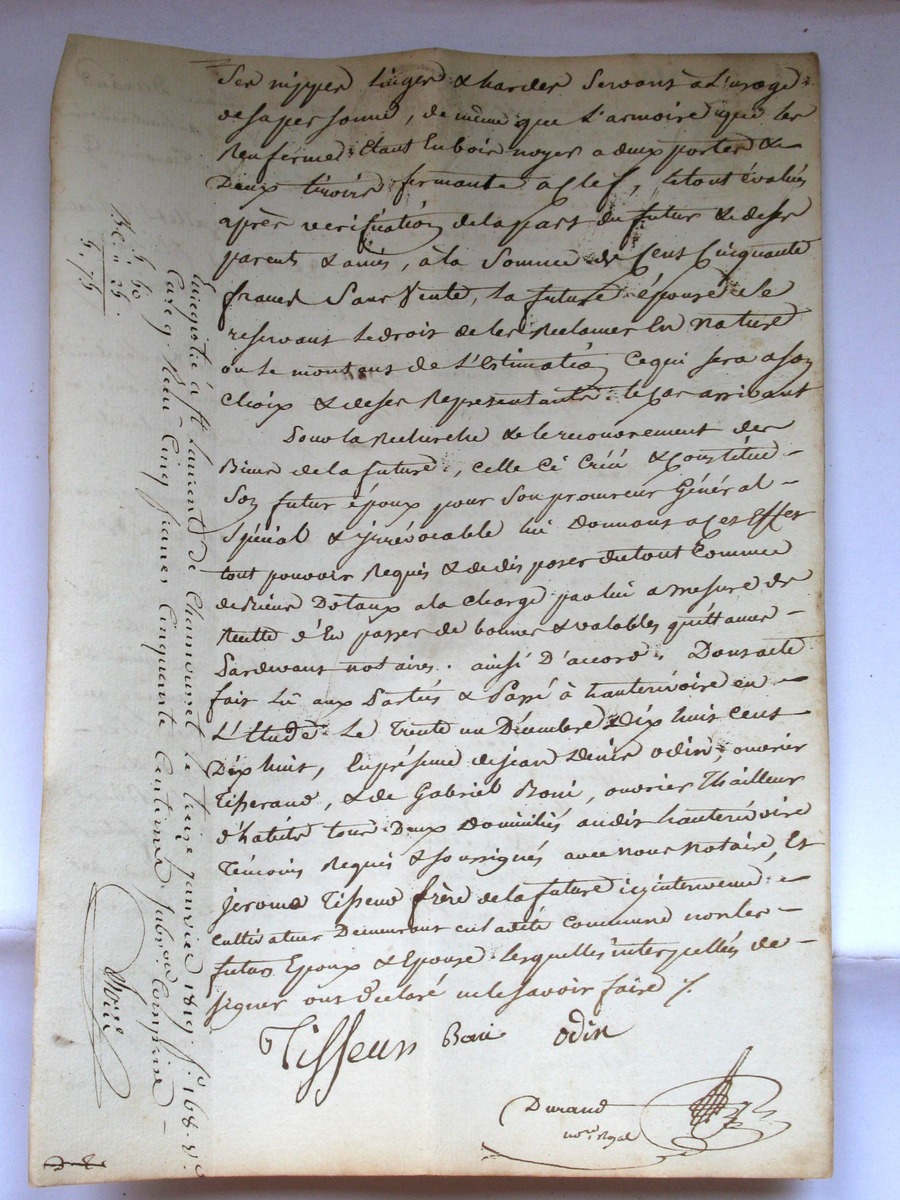 Ses nippes linges & hardes Servans à L'usage
de sa personne, de même que L'armoire que les
Renferme Etant En bois noyer a deux portes &
Deux tiroirs fermante a Clef, le tout évalués
après vérification de la part du futur & de ses
parents & amis, à la Somme de Cent Cinquante
francs Sans Vente, la future épouse Se
reservant le droit de les Reclamer En Nature
ou le montans de L'Estimation Ce qui sera a son
Choix & de ses Representants le Cas arrivant
Pour la Recherche & le recouvrement des
Biens de la future, celle Ci Créé & Constitue
Son futur époux pour Son procureur Général
Spécial & irrévocable lui Donnans a Ces Effet
tout pouvoir Requis & de disposer du tout Comme
de Biens Dotaux a la Charge par lui a mesure de
Recette d'En passer de bonnes & valables quittances
Pardevans notaires. ainsi D'accord, Dont acte
fait Lû aux Parties & Passé à hauterivoire en
L'Etude Le Trente un Décembre Dix huit Cent
Dix huit, En présence de jean Denis odin, ouvrier
Tisserand, & de Gabriel Boni, ouvrier Thailleur
d'habits tous Deux Domiciliés audit hauterivoire
Témoins Requis & soussignés avec nous Notaire, Et
jerome Tisseur frère de la future ici intervenu
cultivateur Demeurant en la dite Commune non les
futurs Epoux & Epouse lesquelles interpellés de
signer ont déclaré ne le savoir faire /.
Tisseur Boni odin
Durand
no.re Royal
Enregistré à St laurent de Chamousset le treize janvier 1819. f.o 168. v.o
Case 9. Reçu Cinq francs Cinquante Centimes. Subv.on Comprise
5. 50
25
5. 75